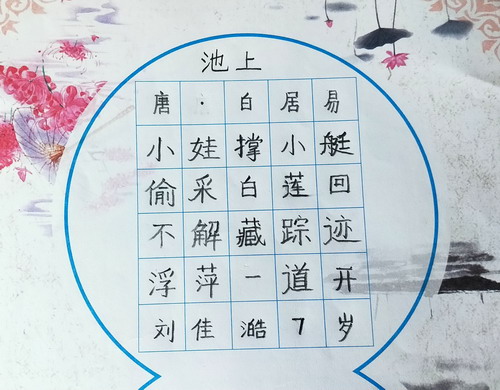 池上
唐·白居易
小娃撑小艇
偷采白莲回
不解藏踪迹
浮萍一道开
刘佳澔7岁